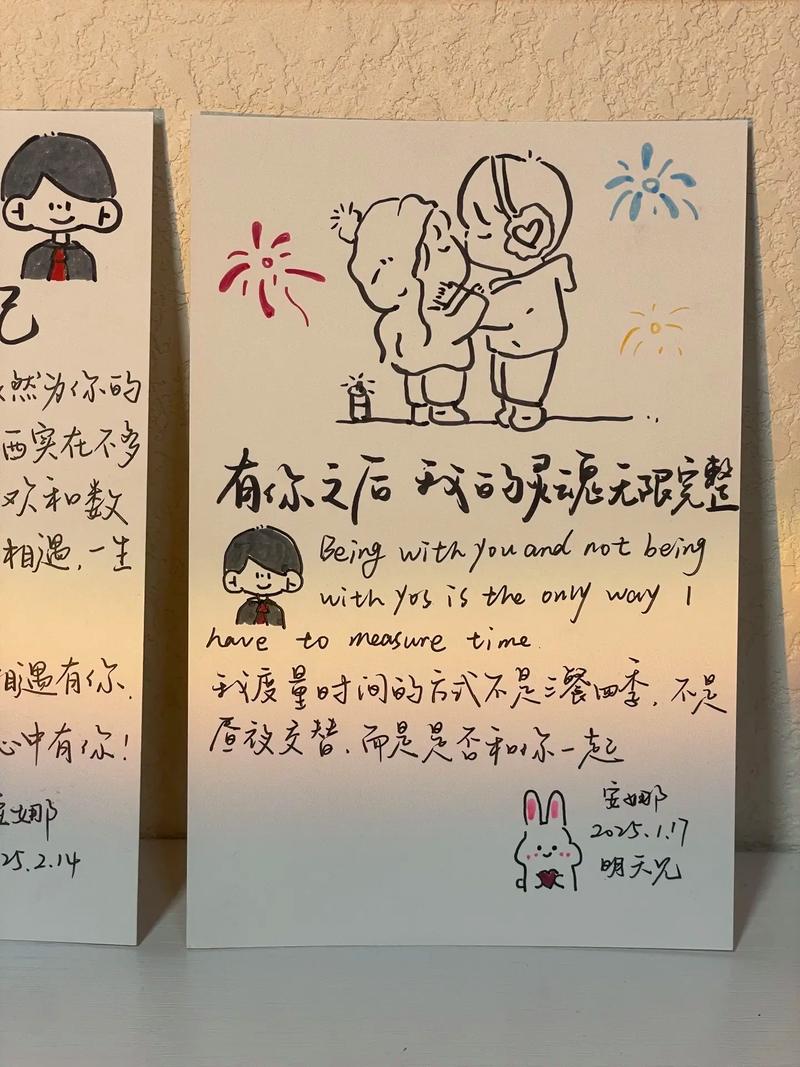 己
然为你的
西实在不多
欢和数
相遇,一生
相遇有你,
心中有你!
娜
25.2.14
有你之后 我的灵魂无限完整
Being with you and not being
with yos is the only way I
have to measure time.
我度量时间的方式不是三餐四季,不是
昼夜交替,而是是否和你一起
娜
2025.1.17
明天见